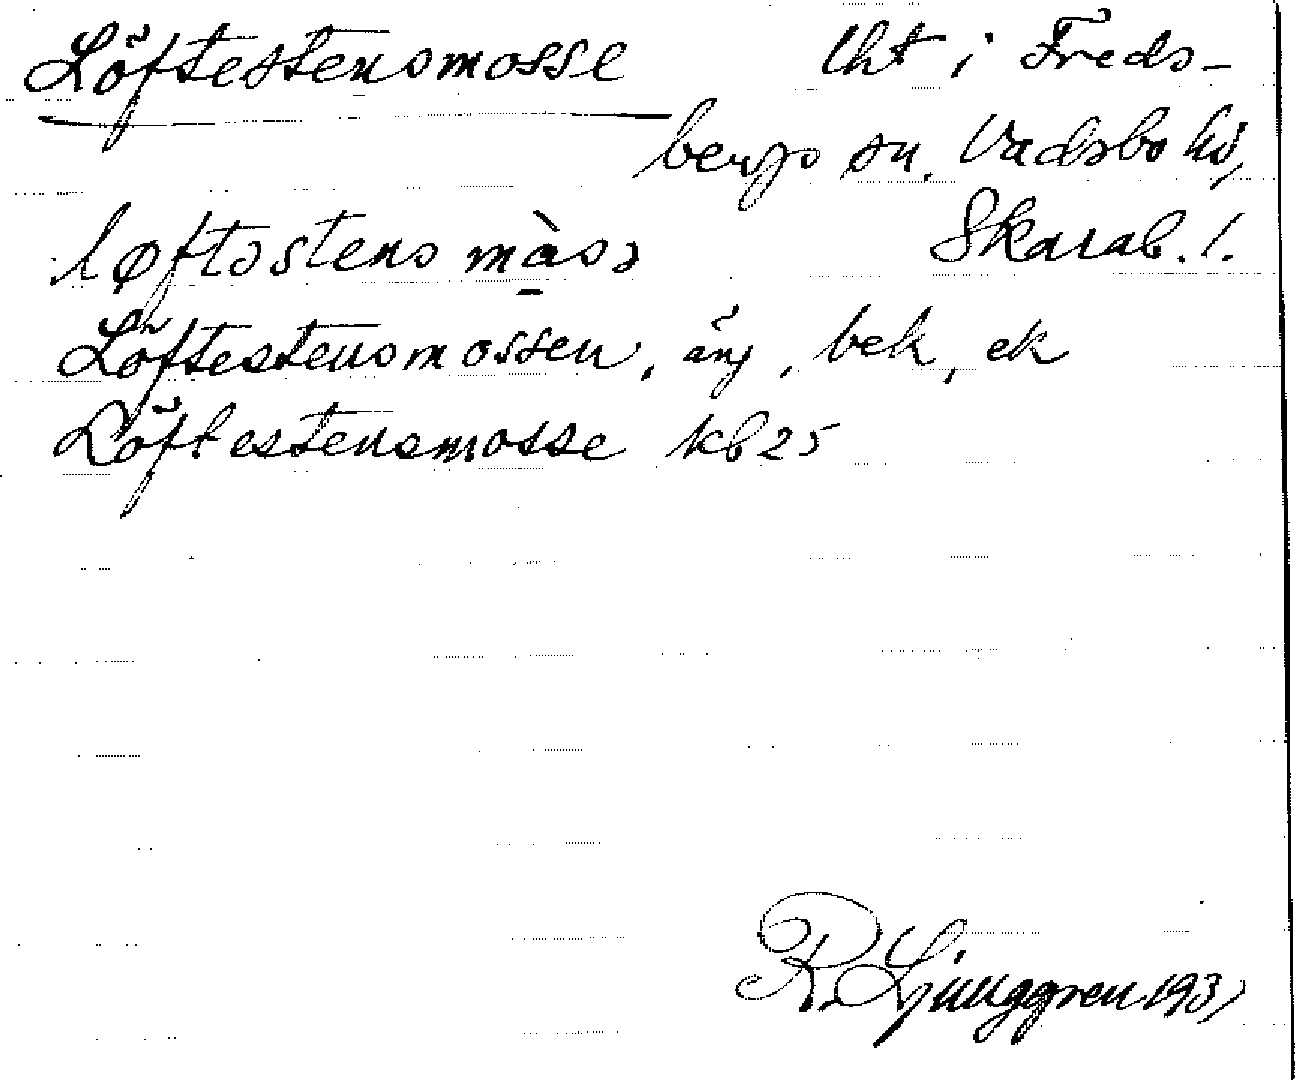 Löftestensmosse
Uht i Freds-
bergs sn. Vadsbo hd,
Skarab. l.
løftəstens màsə
Löftestensmossen, äng, bek, ek
Löftestensmosse kb 25
R. Ljunggren 193